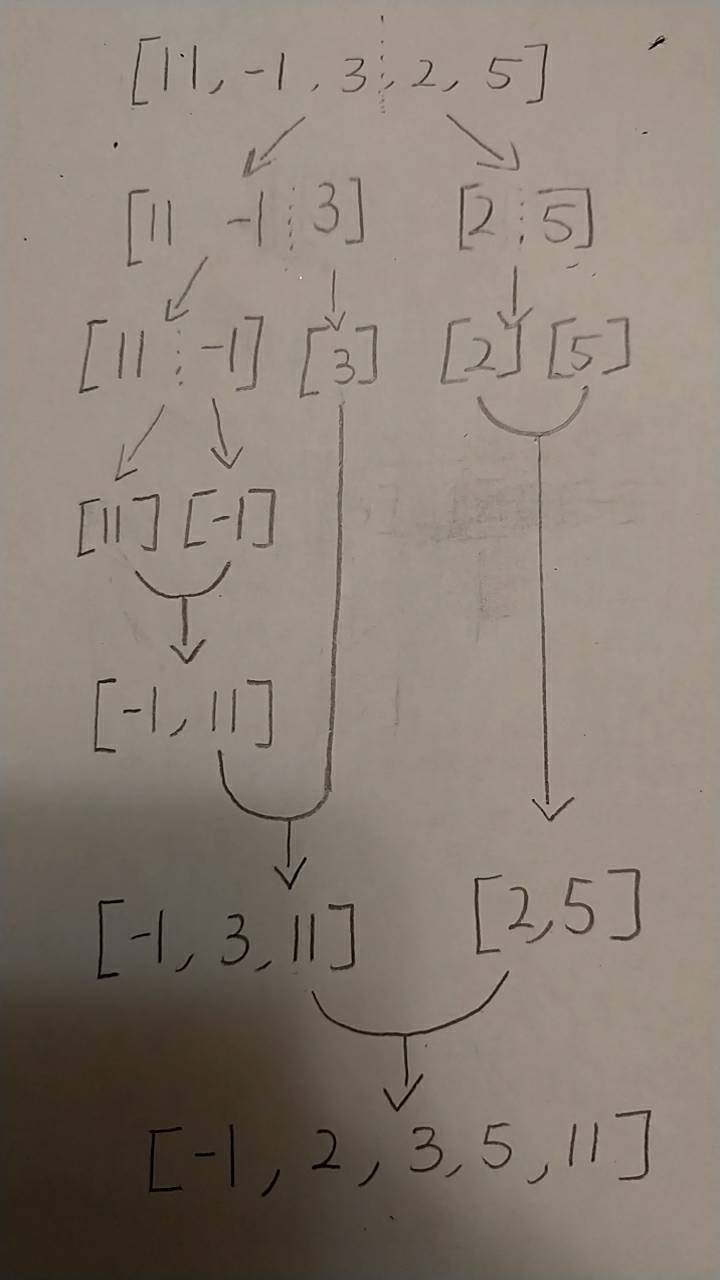 [11, -1, 3, 2, 5]
[11 -1 3] [2 5]
[11 -1] [3] [2] [5]
[11] [-1]
[-1, 11]
[-1, 3, 11] [2,5]
[-1, 2, 3, 5, 11]